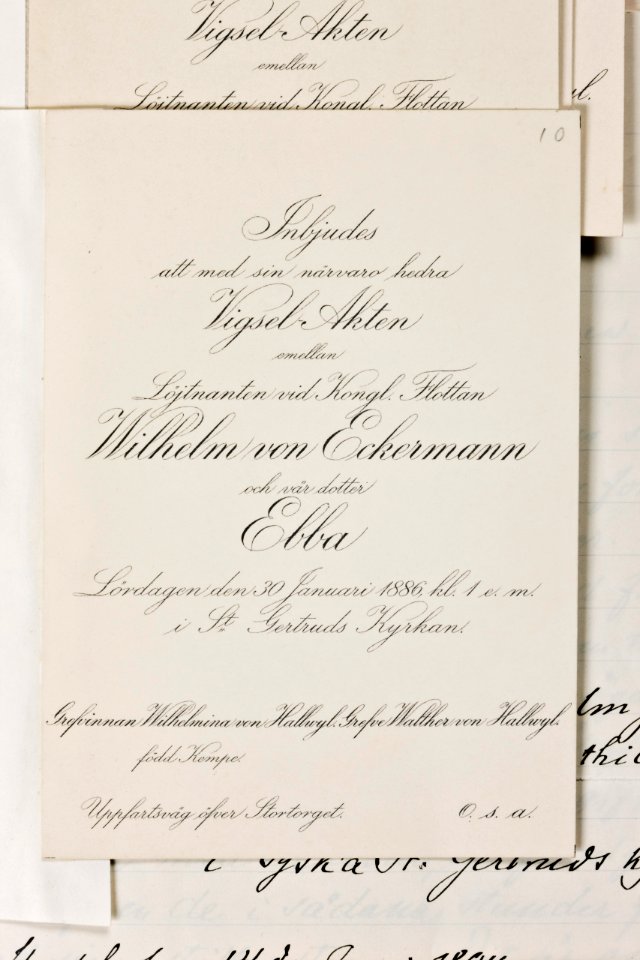 Vigsel-Akten
emellan
Löitnanten vid Kongl. Flottan
10
Inbjudes
att med sin närvaro hedra
Vigsel-Akten
emellan
Löjtnanten vid Kongl. Flottan
Wilhelm von Eckermann
och vår dotter
Ebba
Lördagen den 30 Januari 1886, kl. 1 e. m.
i St. Gertruds Kyrkan.
Grefvinnan Wilhelmina von Hallwyl. Grefve Walther von Hallwyl.
född Kempe.
Uppfartsväg öfver Stortorget. O. s. a.
i Tyska St. Gertruds
de i sådana stunder